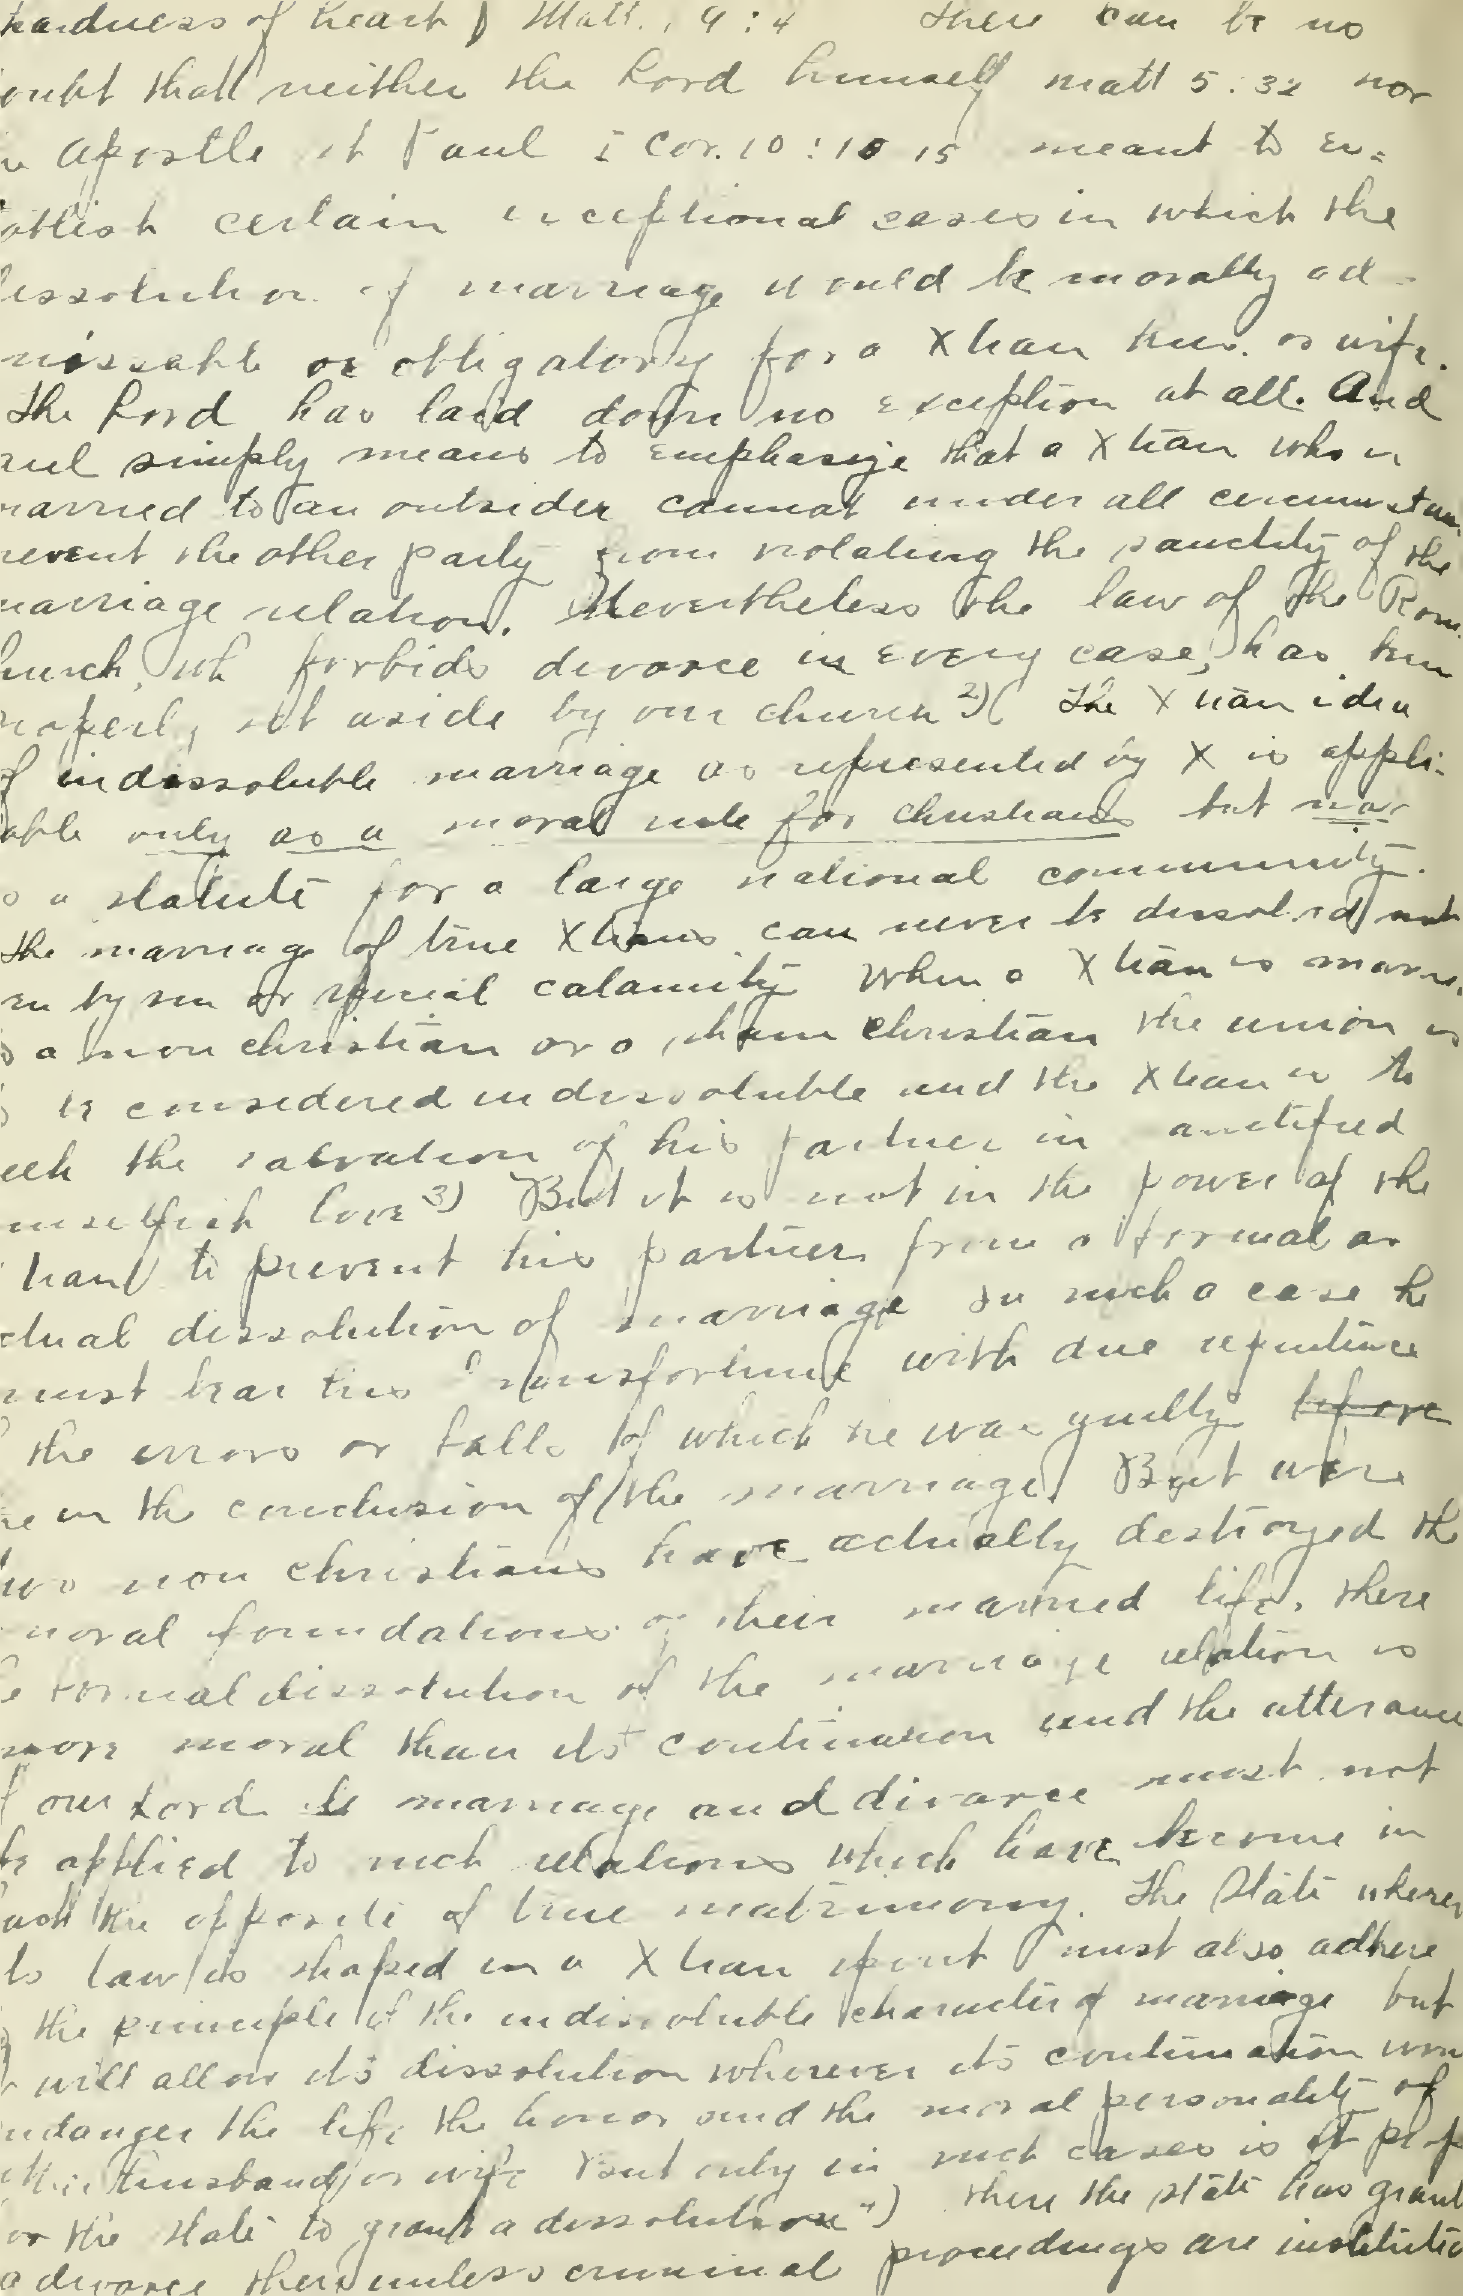 hardness of heart) Matt. 19:4 There can be no
oubt that neither the Lord himself matt 5:32 nor
apostle St Paul I Cor. 10:10 15 meant to es=
ablish certain exceptional cases in which the
issolution of marriage would be morally ad-
missable or obligatory for a Xtian hus. or wife.
The Lord has laid down no exception at all. And
aul simply means to emphasize that a Xtian who is
married to an outsider cannot under all circumstan
revent the other party from violating the sanctity of the
marriage relation. Nevertheless the law of the Rom.
hurch, wh forbids divorce in every case, has been
roperly set aside by our church 2) The Xtian idea
of indissoluble marriage as represented by X is appli-
able only as a moral rule for christians but not
s a statute for a large national community.
The marriage of true Xtians can never be dissolved not
en by sin or special calamity When a Xtian is marrie
o a non christian or a sham Christian the union is
o be considered indissoluble and the Xtian is to
eek the salvation of his partner in sanctified
unselfish love 3) But it is not in the power of the
tian to prevent his partner from a formal or
ctual dissolution of marriage In such a case he
must bear this misfortune with due repentance
the errors or falls of which he was guilty before
in the conclusion of the marriage. But were
two non christians have actually destroyed the
moral foundations of their married life, there
e formal dissolution of the marriage relation is
more moral than its continuation and the utteranc
f our Lord marriage and divorce must not
be applied to such relations which have become in
the opposite of true matrimony. The State where
ts law is shaped in a Xtian spirit must also adhere
the principle of the indissoluble character of marriage but
will allow its dissolution wherever its continuation wou
ndanger the life the honor and the moral personality of
husband or wife But only in such cases is it prop
for the state to grant a dissolution 4) Where the state has grant
a divorce there unless criminal proceedings are institute